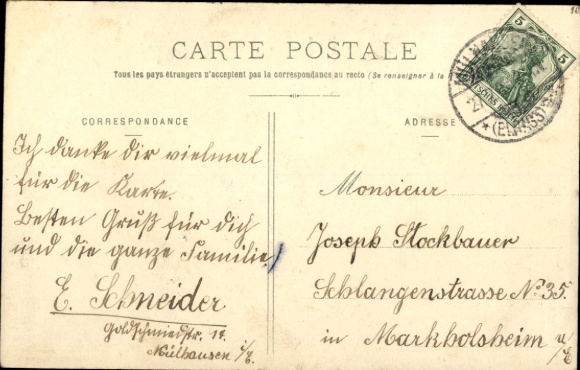 CARTE POSTALE
Tous les pays étrangers n'acceptent pas la correspondance au recto (Se renseigner à la
CORRESPONDANCE
Ich danke dir vielmal
für die Karte.
Besten Gruß für dich
und die ganze Familie!
E. Schneider
Goldschmiedstr. 17.
Mülhausen i/E.
ADRESSE
Monsieur
Joseph Stockbauer
Schlangenstrasse No 35.
in Markholsheim
5 5
(ELSASS)